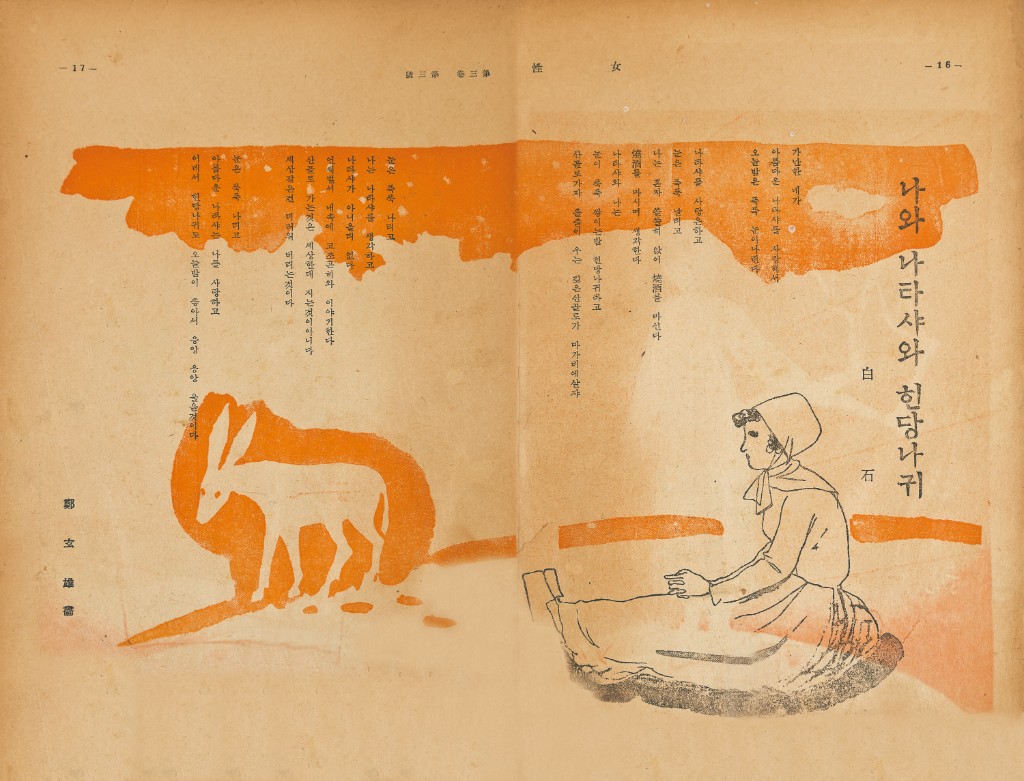 —16—
女性
나와 나타샤와 힌당나귀
白石
가난한 내가
아름다운 나타샤를 사랑해서
오늘밤은 푹푹 눈이나린다
나타샤를 사랑은하고
눈은 푹푹 날리고
나는 혼자 쓸쓸히 앉어 燒酒를 마신다
燒酒를 마시며 생각한다
나타샤와 나는
눈이 푹푹 쌓이는밤 힌당나귀타고
산골로가쟈 출출이 우는 깊은산골로가 마가리에살쟈
第三卷 第三號
—17—
눈은 푹푹 나리고
나는 나타샤를 생각하고
나타샤가 아니올리 없다
언제벌서 내속에 고조곤히와 이야기한다
산골로 가는것은 세상한테 지는것이아니다
세상같은건 더러워 버리는것이다
눈은 푹푹 나리고
아름다운 나타샤는 나를 사랑하고
어데서 힌당나귀도 오늘밤이 좋아서 응앙 응앙 울을것이다
鄭玄雄畵